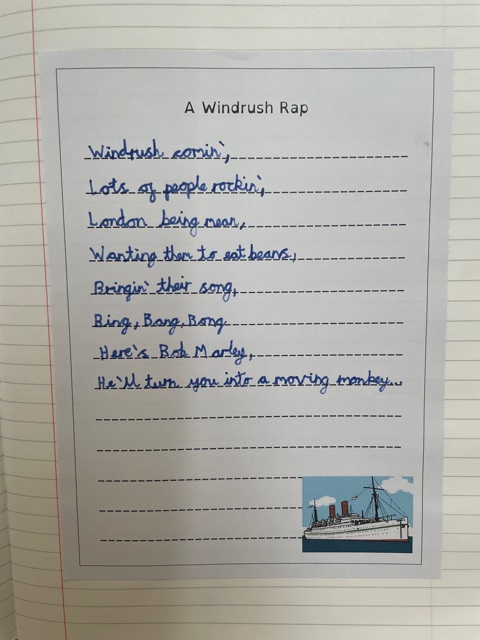 A Windrush Rap
Windrush comin',
Lots of people rockin',
London being mean,
Wanting them to eat beans,
Bringin' their song,
Bing, Bang, Bong
Here's Bob Marley,
He'll turn you into a moving monkey...